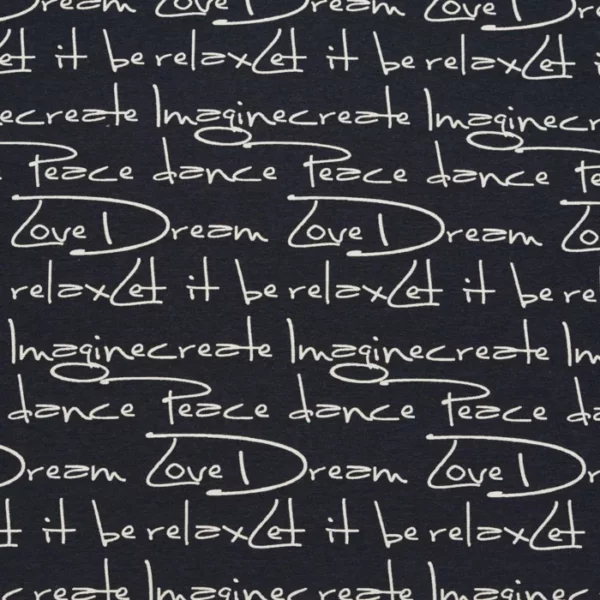 Dream Love Dre
Let it be relax Let it
ecreate Imaginecreate Imaginecr
Peace dance Peace dance Pe
Love Dream Love Dream Lo
relax Let it be relax Let it be re
Imaginecreate Imaginecreate Im
dance Peace dance Peace da
Dream Love Dream Love Dr
et it be relax Let it be relax Let
create Imaginecreate Imaginec